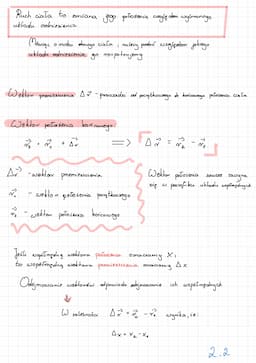 Ruch ciała to zmiana jego położenia względem wybranego
układu odniesienia
Mówiąc o ruchu danego ciała, należy podać względem jakiego
układu odniesienia go rozpatrujemy
Wektor przemieszczenia Δr - prowadzi od początkowego do końcowego położenia ciała
Wektor położenia końcowego
r₂ = r₁ + Δr ⟹ Δr = r₂ - r₁
Δr - wektor przemieszczenia
r₁ - wektor położenia początkowego
r₂ - wektor położenia końcowego
Wektor położenia zawsze zaczyna
się w początku układu współrzędnych
Jeśli współrzędną wektora położenia oznaczamy x;
to współrzędną wektora przemieszczenia oznaczamy Δx
Odejmowanie wektorów odpowiada odejmowaniu ich współrzędnych
Z równania Δr = r₂ - r₁ wynika, że:
Δx = x₂ - x₁
2.2